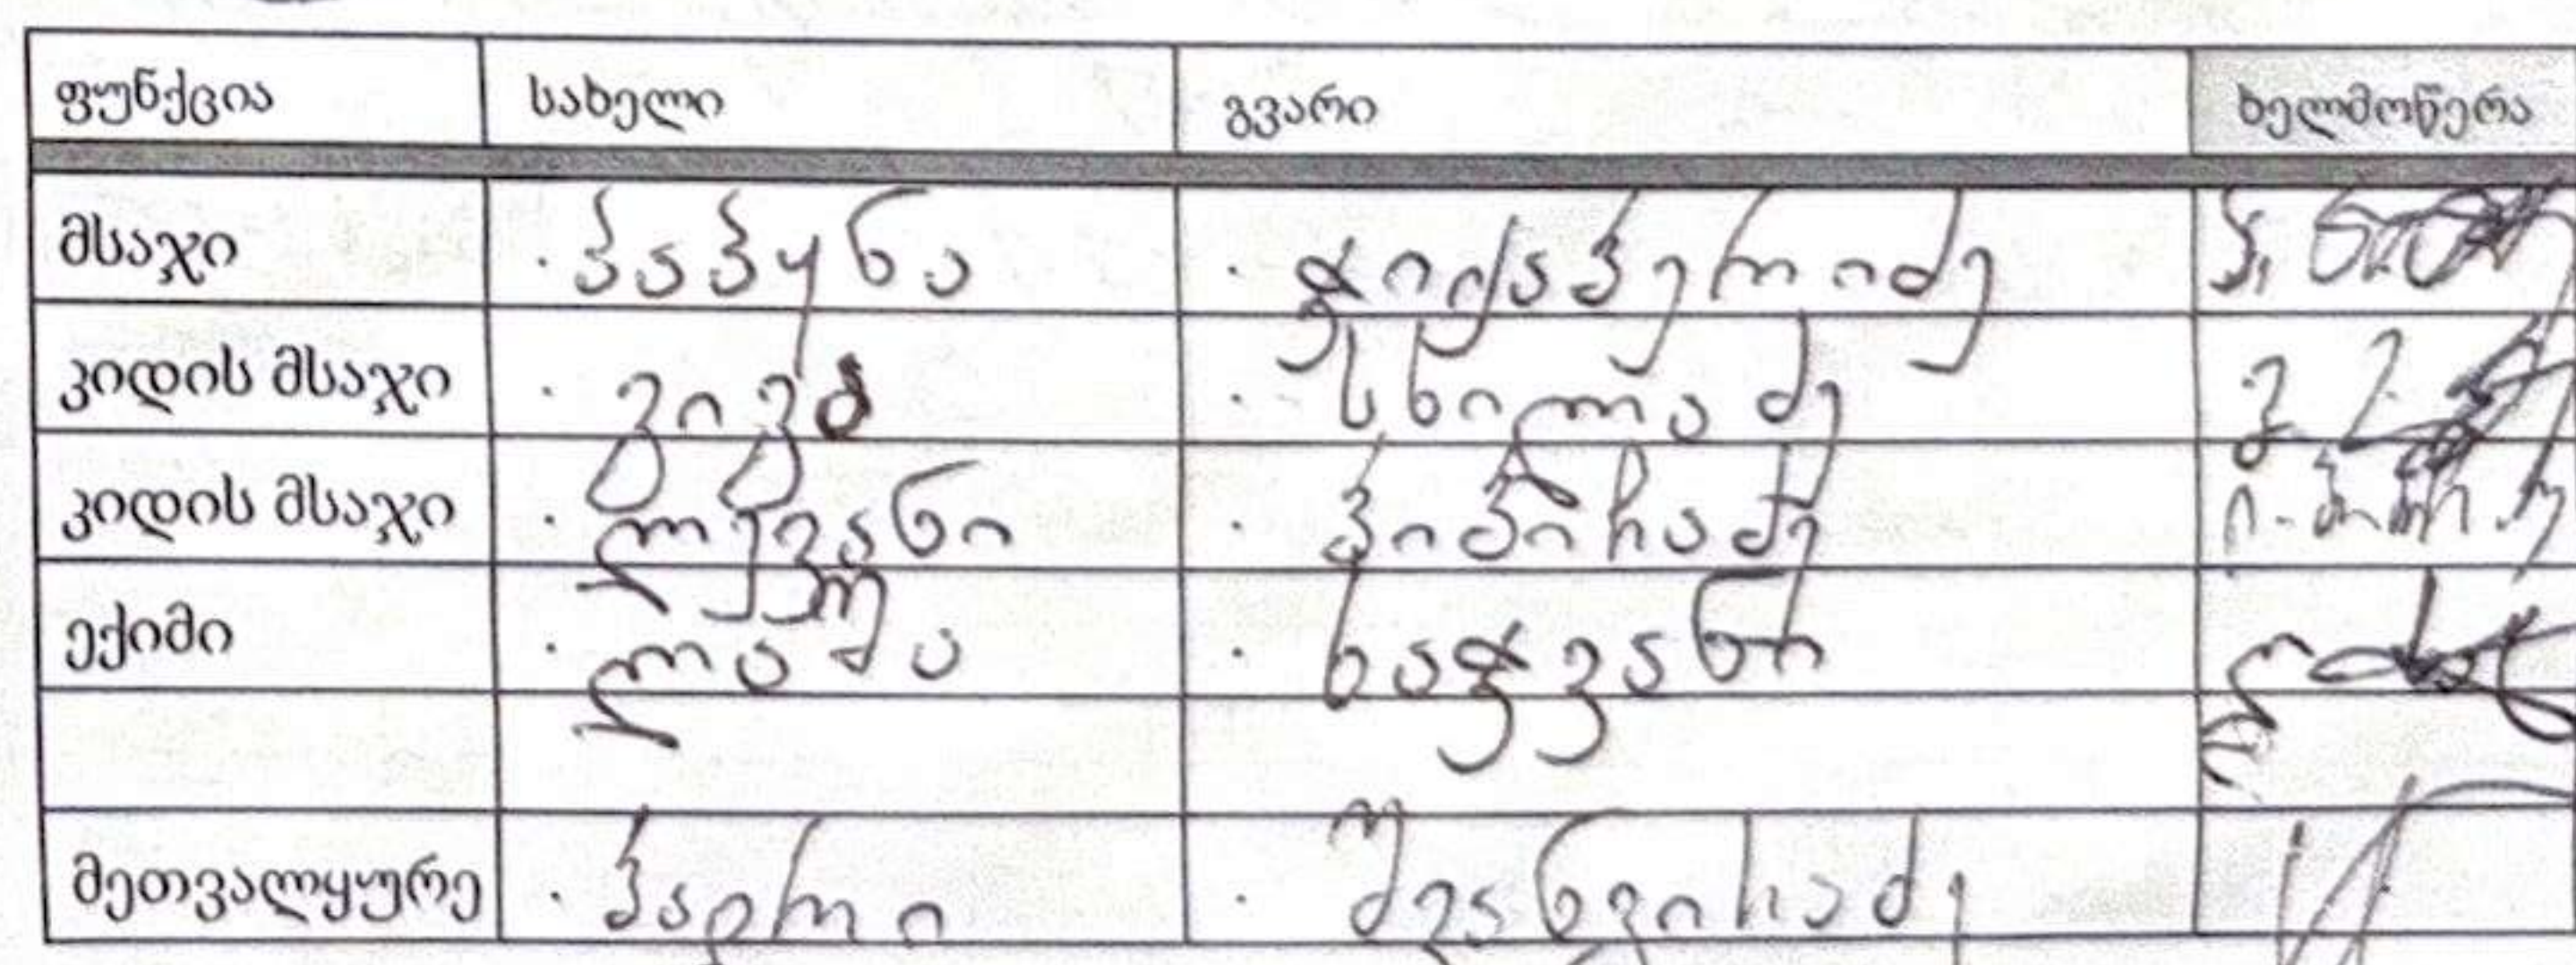 ფუნქცია სახელი გვარი ხელმოწერა
მსაჯი პაპუნა ჭიქაბერიძე
კიდის მსაჯი გიგა სხილაძე
კიდის მსაჯი ლევანი
ექიმი ლაშა ხაჭვანი
მეთვალყურე ბადრი შვანგირაძე